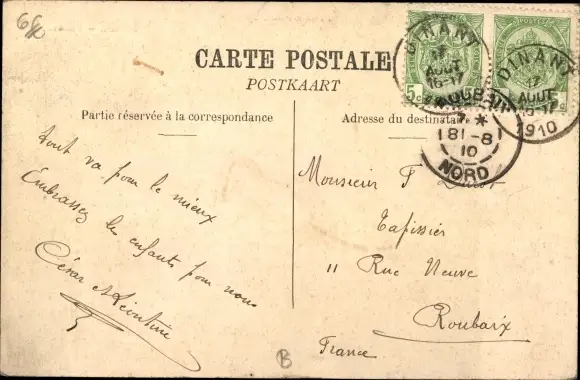 68
CARTE POSTALE
POSTKAART
Partie réservée à la correspondance
Adresse du destinataire
DINANT
17
AOUT
16-17
DINANT
17
AOUT
16-17
1910
5c
ROUBAIX
7 *
181-8
10
NORD
Tout va pour le mieux
Embrassez les enfants pour nous
César et Léontine
Monsieur F
Tapissier
11 Rue Neuve
Roubaix
France
B